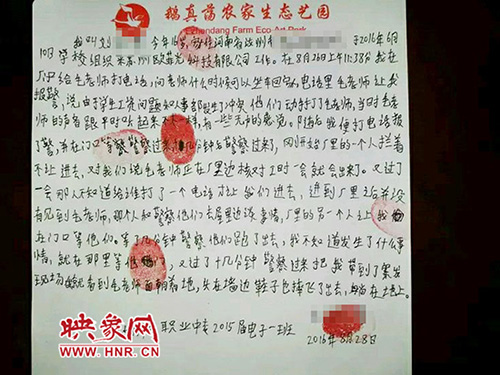 鹅真荡农家生态艺园
Ezhendang Farm Eco Art Park
我叫刘 今年16岁,家住河南省达州市 于2016年6月
10日学校组织来苏州欧菲光科技有限公司工作。在8月26日上午11:38分我在
厂中给毛老师打电话,问老师什么时候可以坐车回家,电话里毛老师让我
报警,说由于学生工资问题和人事部发生了冲突他们动手打了毛老师,当时毛老
师的声音跟平时听起来不太一样,有一些无力的感觉,随后我便打电话报
了警,并在门口等警察,警察过来了,几分钟后 刚开始厂里的一个人拦着
不让进去,对我们说毛老师正在厂里边核对工时一会就会出来了。又过了
一会那人不知道给谁打了一个电话才让我们进去,进到厂里之后并没
有见到毛老师,那个人和警察他们去屋里边说事情,厂里的另一个人让我
在门口等他们。等了几分钟警察他们跑了出去,我不知道发生了什么事
情,就在那里等他们,又过了十几分钟警察过来把我带到了案发
现场,我看到毛老师面朝着地,头在墙边鞋子也摔飞了出去,躺在地上。
职业中专2015届电子一班
2016年8月28日
映象网
WWW.HNR.CN